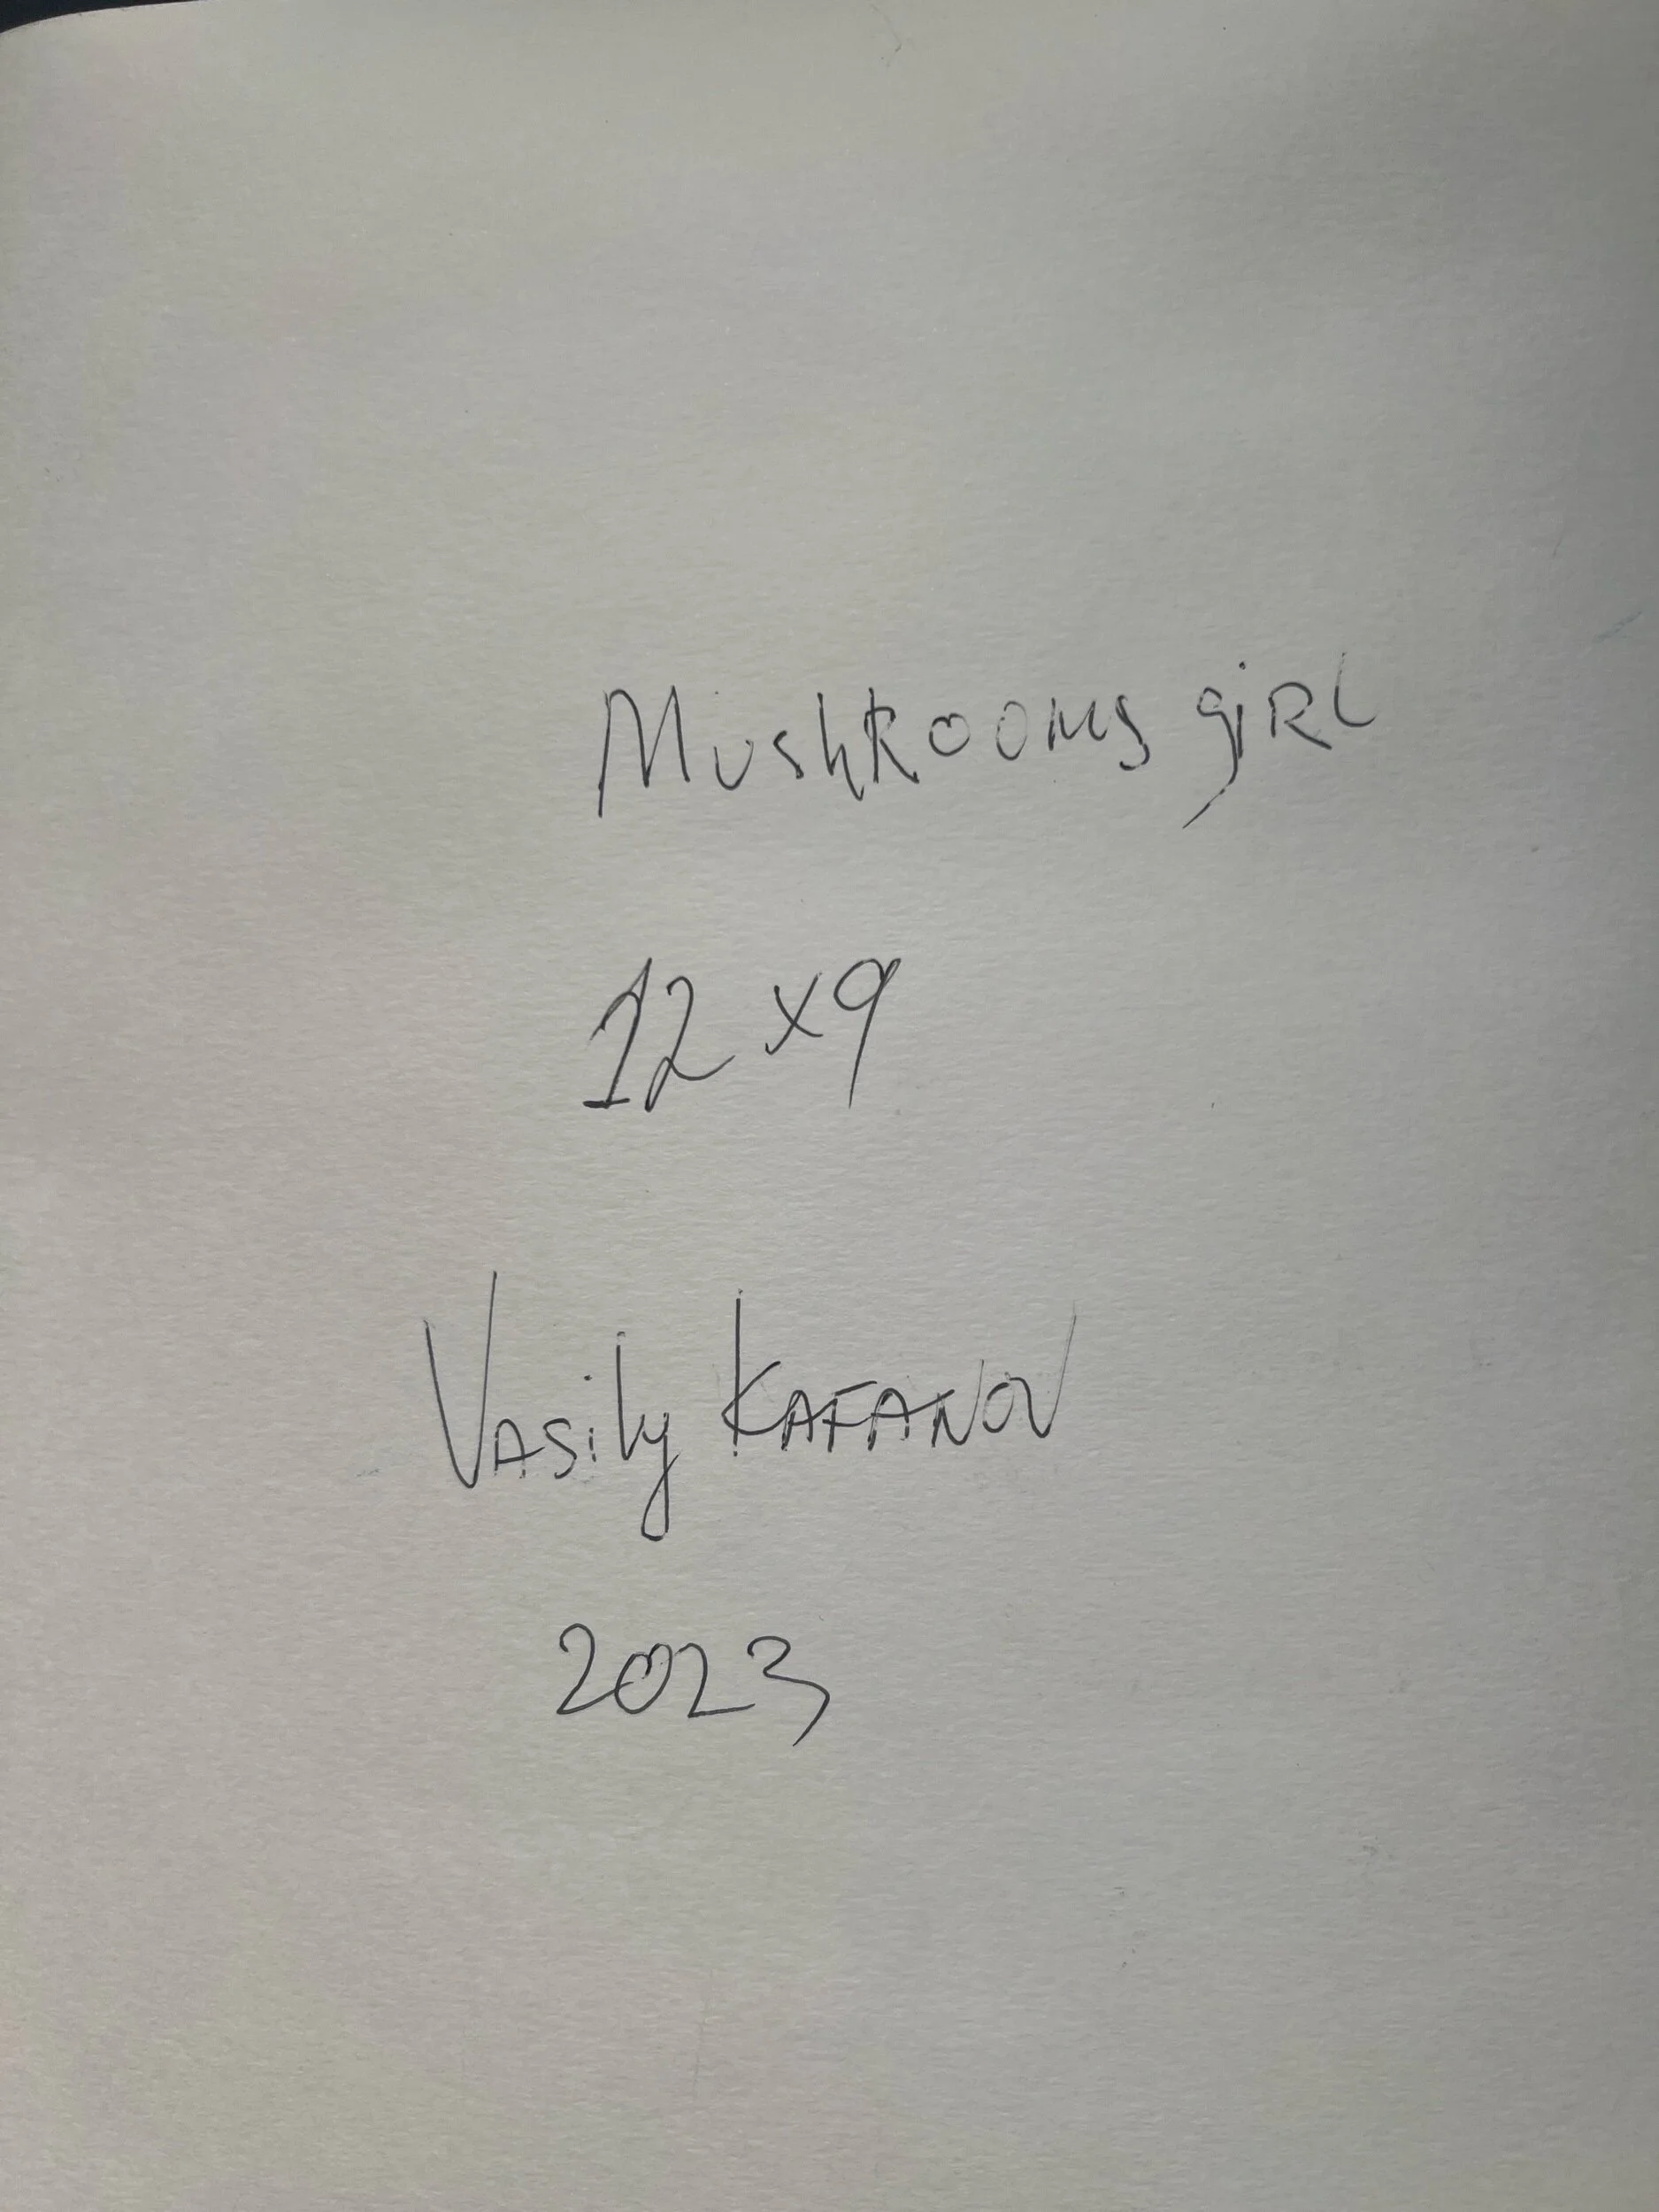 Mushrooms girl
12 x 9
Vasily Kafanov
2023